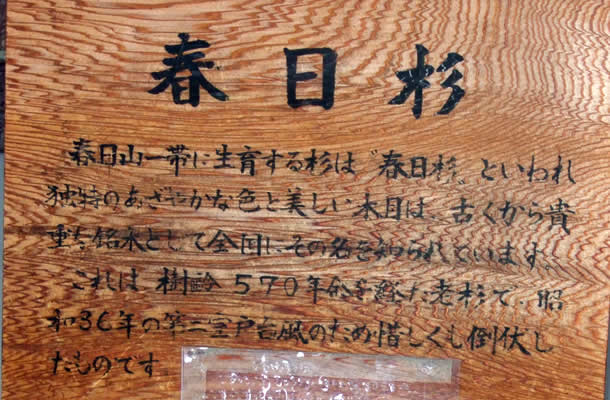 春日杉
春日山一帯に生育する杉は〝春日杉〟といわれ
独特のあざやかな色と美しい木目は、古くから貴
重な銘木として全国にその名を知られています。
これは、樹齢570年余を経た老杉で、昭
和36年の第二室戸台風のため惜しくも倒伏し
たものです